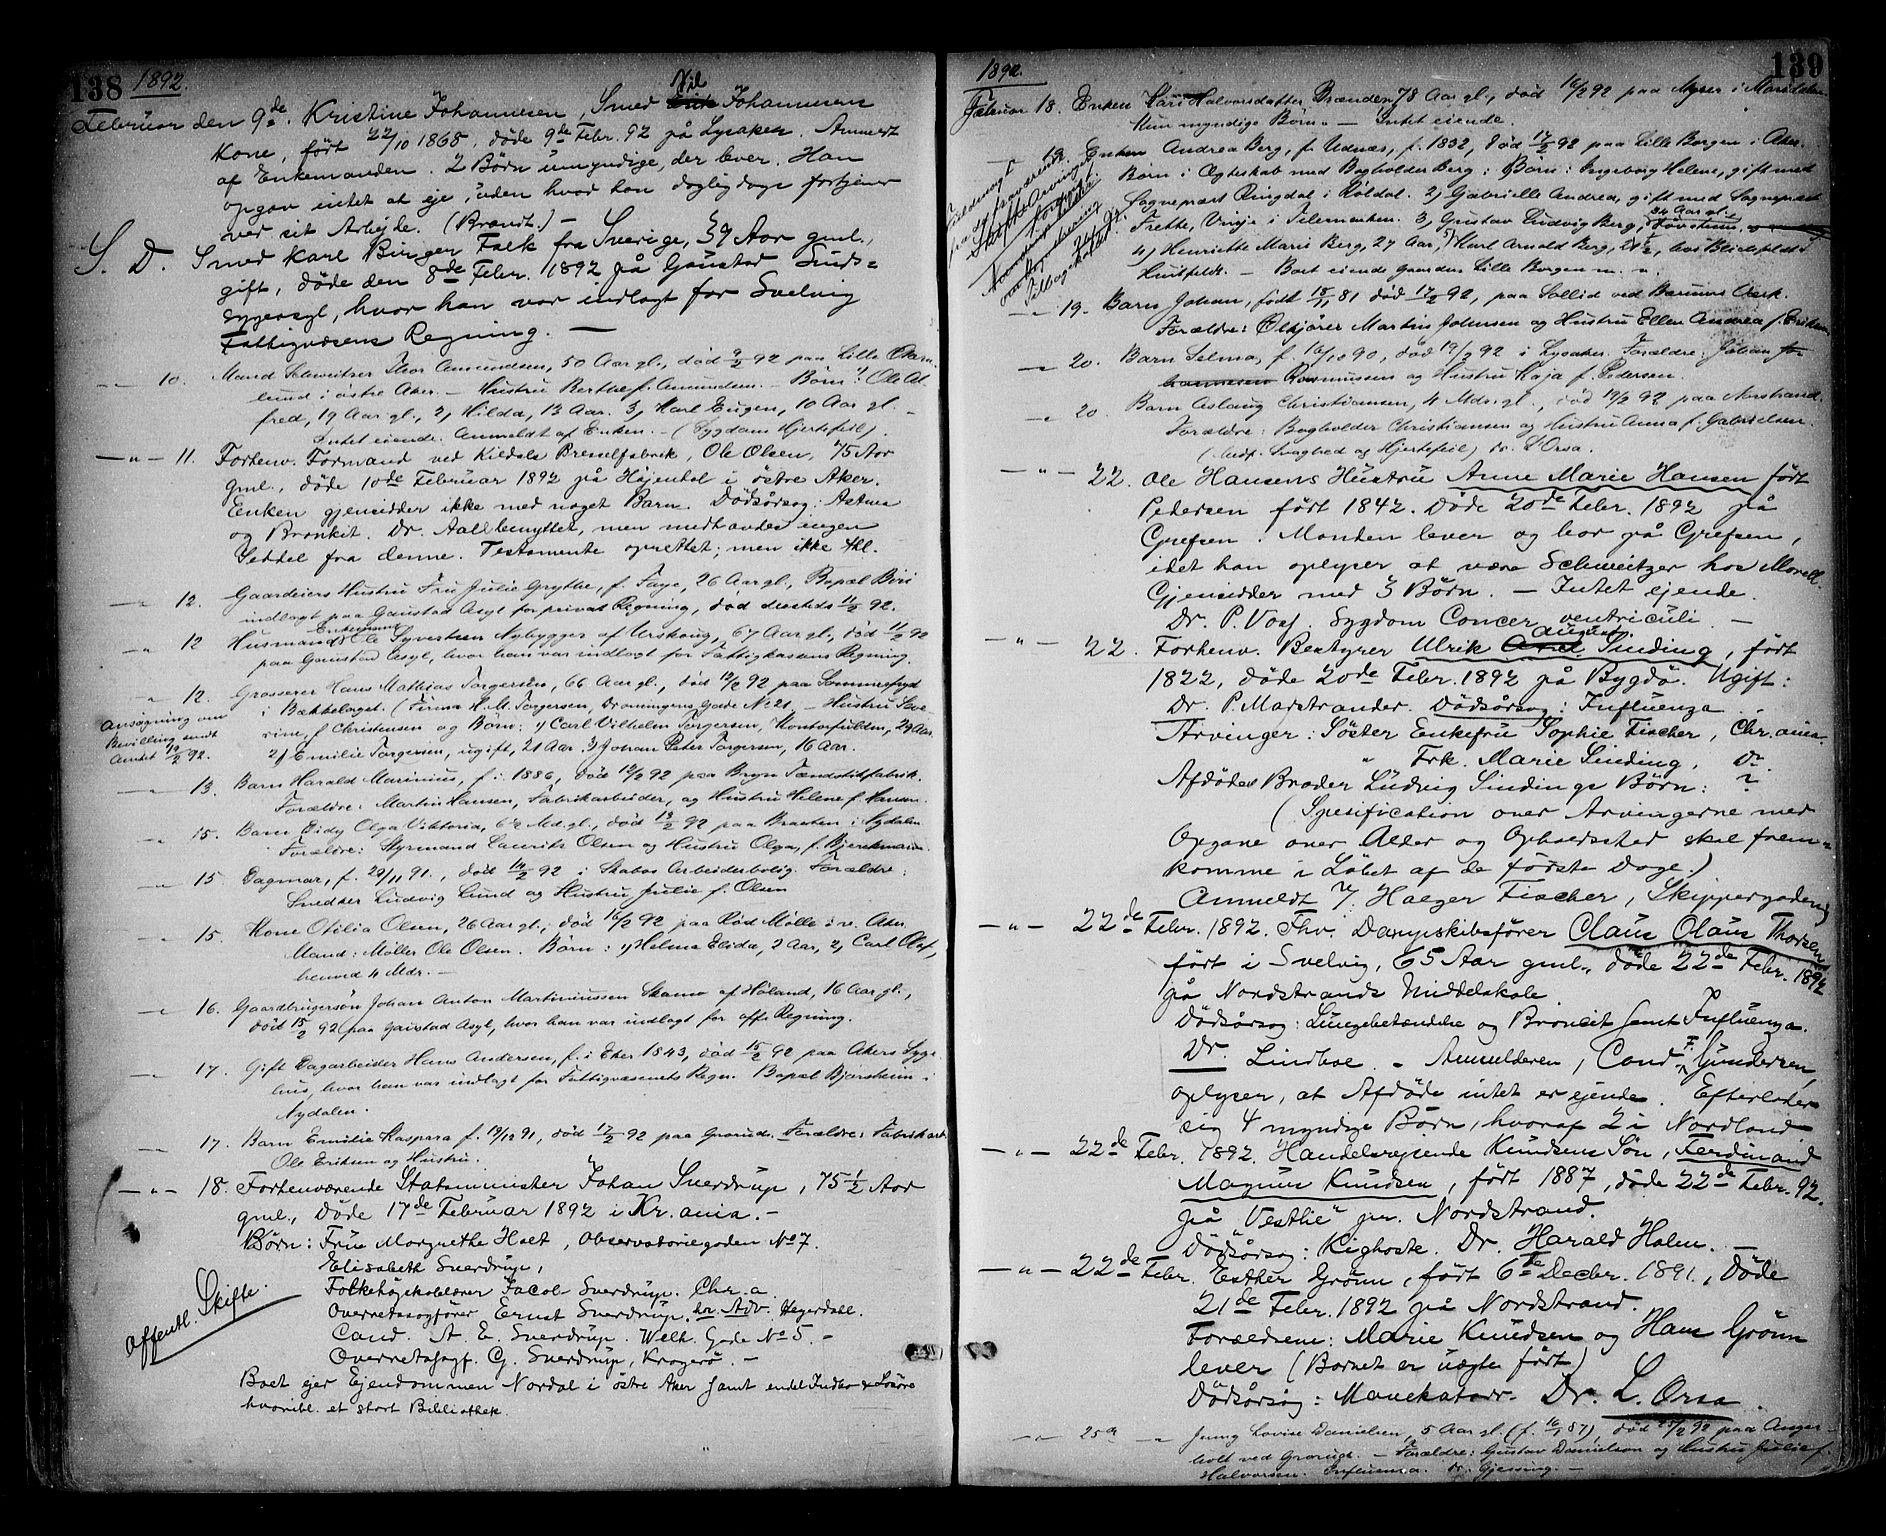 138 1892.
Februar den 9de Kristine Johannesen, Smed Nil Johannesens
Kone, født 22/10 1865, døde 9de Febr. 92 på Lysaker. Anmeldt
af Enkemanden. 2 Børn umyndige, der lever. Han
opgav intet at eje, uden hvad han daglig dags fortjener
ved sit Arbejde. (Brandt.) —
S. D. Smed Karl Birger Falk fra Sverige, 39 Aar gml.,
gift, døde den 8de Febr. 1892 på Gaustad Sinds=
sygeasyl, hvor han var indlagt for Svelvig
Fattigvæsens Regning. —
—"— 10. Mand Schweitser Thor Amundsen, 50 Aar gl., død 9/2 92 paa Lille Aker
lund i østre Aker. — Hustru Berthe f. Amundsen. — Børn: 1) Ole Al-
fred, 19 Aar gl., 2) Hilda, 13 Aar. 3) Karl Eugen, 10 Aar gl. —
Intet eiende. Anmeldt af Enken. — (Sygdom Hjertefeil).
—"— 11. Forhenv. Formand ved Kildals Brænselfabrik, Ole Olsen, 75 Aar
gml., døde 10de Februar 1892 på Højenhal i østre Aker.
Enken gjensidder ikke med noget Barn. Dødsårsag: Astma
og Bronkit. Dr. Aall benyttet, men medhavdes ingen
Seddel fra denne. Testamente oprettet; men ikke thl.
—"— 12. Gaardeiers Hustru Fru Julie Grythe, f. Faye, 26 Aar gl., Bopæl Biri
indlagt paa Gaustad Asyl for privat Regning, død dersteds 11/2 92.
—"— 12 Husmand Enkemand Ole Syvertsen Nybygget af Urskoug, 67 Aar gl., død 11/2 92
paa Gaustad Asyl, hvor han var indlagt for Fattigkassens Regning.
" 12. Grosserer Hans Mathias Torgersen, 66 Aar gl., død 12/2 92 paa Sommerfryd
i Bækkelaget. (Firma H. M. Torgersen, Dronningens Gade No 21. — Hustru Seve-
rine, f. Christensen og Børn: 1) Carl Vilhelm Torgersen, Kontorfuldm., 29 Aar.
2) Emilie Torgersen, ugift, 21 Aar. 3) Johan Peter Torgersen, 16 Aar.
Ansøgning om
Bevilling sendt
Amtet 19/2 92.
—"— 13. Barn Harald Marinius, f. i 1886, død 12/2 92 paa Bryn Tændstikfabrik.
Forældre: Martin Hansen, Fabrikarbeider, og Hustru Helene f. Hansen.
—"— 15. Barn Eidy Olga Viktoria, 6½ Md. gl., død 13/2 92 paa Braaten i Nydalen
Forældre: Styrmand Laurits Olsen og Hustru Olga, f. Bjerckmann.
—"— 15 Dagmar, f. 29/11 91., død 14/2 92 i Skabos Arbeiderbolig. Forældre:
Snedker Ludvig Lund og Hustru Julie f. Olsen
" 15. Kone Otilia Olsen, 26 Aar gl., død 16/2 92 paa Rød Mølle i v. Aker
Mand: Møller Ole Olsen. Børn: 1) Helma Elida, 2 Aar, 2) Carl Olaf,
henved 4 Mdr. —
—"— 16. Gaardbrugersøn Johan Anton Martiniussen Skamo af Høland, 16 Aar gl.,
død 15/2 92 paa Gaustad Asyl, hvor han var indlagt for off. Regning.
—"— 17. Gift Dagarbeider Hans Andersen, f. i Eker 1843, død 15/2 92 paa Akers Syge-
hus, hvor han var indlagt for Fattigvæsenets Regn. Bopæl Bjørsheim i
Nydalen.
—"— 17. Barn Emilie Kaspara f. 19/12 91, død 17/2 92 paa Grorud. Forældre: Fabrikarb.
Ole Eriksen og Hustru.
—"— 18. Forhenværende Statsminister Johan Sverdrup, 75 ½ Aar
gml., Døde 17de Februar 1892 i Kr.ania. —
Børn: Frue Margrethe Holt, Observatoriegaden No 7.
Elisabeth Sverdrup,
Folkehøjskolelærer Jacob Sverdrup. Chr.a.
Overretssagfører Ernst Sverdrup. hos Adv. Hegerdahl.
Cand. A. E. Sverdrup. Welh. Gade No 5. —
Overretssagf. G. Sverdrup, Kragerø. —
Offentl. Skifte.
Boet ejer Ejendommen Nordal i østre Aker samt endel Indbo & Løsøre
hvoribl. et stort Bibliothek.
1892. 139
Februar 18. Enken Kari Halvorsdatter Brænden, 78 Aar gl., død 16/2 92 paa Myrer i Maridalen
Kun myndige Børn. — Intet eiende.
— 19. Enken Andrea Berg, f. Udnæs, f. 1832, død 17/2 92 paa Lille Borgen i Aker.
Børn i Ægteskab med Bogholder Berg: 1) Børn: Ingeborg Helene, gift med
Sogneprest Ringdal i Røldal. 2) Gabrielle Andrea, gift med Sogneprest
Trette, Vinje i Telemarken. 3) Gustav Ludvig Berg, 34 Aar gl.
4) Henriette Marie Berg, 27 Aar, 5) Karl Arnold Berg, 21½,
Huitfeldt. — Boet eiende Gaarden Lille Borgen m. m.
—"— 19. Barn Johan, født 18/11 81 død 17/2 92, paa Sollid ved Bærums Værk.
Forældre: Ølkjører Martin Johnsen og Hustru Ellen Andrea f. Eriksen
—"— 20. Barn Selma, f. 16/10 90, død 19/2 92 i Lysaker. Forældre: Johan
Rasmussen og Hustru Kaja f. Pedersen.
—"— 20. Barn Aslaug Christiansen, 4 Mdr. gl., død 19/2 92 paa Norstrand.
Forældre: Bogholder Christiansen og Hustru Anna f. Gabrielsen.
(Medf. Svaghed og Hjertefeil) Dr. L'Orsa.
—"— 22. Ole Hansens Hustru Anne Marie Hansen født
Pedersen født 1842. Døde 20de Febr. 1892 på
Grefsen. Manden lever og bor på Grefsen,
idet han oplyser at være Schweitzer hos Morell.
Gjensidder med 3 Børn. — Intet ejende.
Dr. P. Voss. Sygdom Cancer ventriculi. —
—"— 22. Forhenv. Bestyrer Ulrik August Sinding, født
1822, døde 20de Febr. 1892 på Bygdø. Ugift:
Dr. P. Marstrander. Dødsårsag: Influenza.
Arvinger: Søster Enkefru Sophie Fischer, Chr.ania.
" Frk. Marie Sinding, Do.
Afdødes Broder Ludvig Sindings Børn: ?
(Spesification over Arvingerne med
Opgave over Alder og Opholdssted skal frem-
komme i Løbet af de første Dage.)
Anmeldt v/ Holger Fischer, Skippergaden 9
—"— 22de Febr. 1892. Fhv. Dampskibsfører Claus Olaus Thorsen
født i Svelvig, 65 Aar gml., døde 22de Febr. 1892
på Nordstrands Middelskole.
Dødsårsag: Lungebetændelse og Bronkit samt Influenza.
Dr. Lindboe. — Anmelderen, Cand. F. Gundersen,
oplyser, at Afdøde intet er ejende. Efterlader
sig 4 myndige Børn, hvoraf 2 i Nordland
—"— 22de Febr. 1892. Handelsrejsende Knudsens Søn, Ferdinand
Magnus Knudsen, født 1887, døde 22de Febr. 92.
på "Vestlie" pr. Nordstrand.
Dødsårsag: Kighoste. Dr. Harald Holm. —
—"— 22de Febr. Esther Grønn, født 6te Decbr. 1891., Døde
21de Febr. 1892 på Nordstrand.
Forældrene: Marie Knudsen og Hans Grønn
lever (Barnet er uægte født)
Dødsårsag: Mavekatarr. Dr. L. Orsa.
—"— 25de —"— Jenny Lovise Danielsen, 5 Aar gl. (f. 16/1 87), død 25/2 92 paa Anger-
holt ved Grorud. — Forældre: Gustav Danielson og Hustru Julie f.
Halvorsen. Influenza. Dr. Gjessing. —